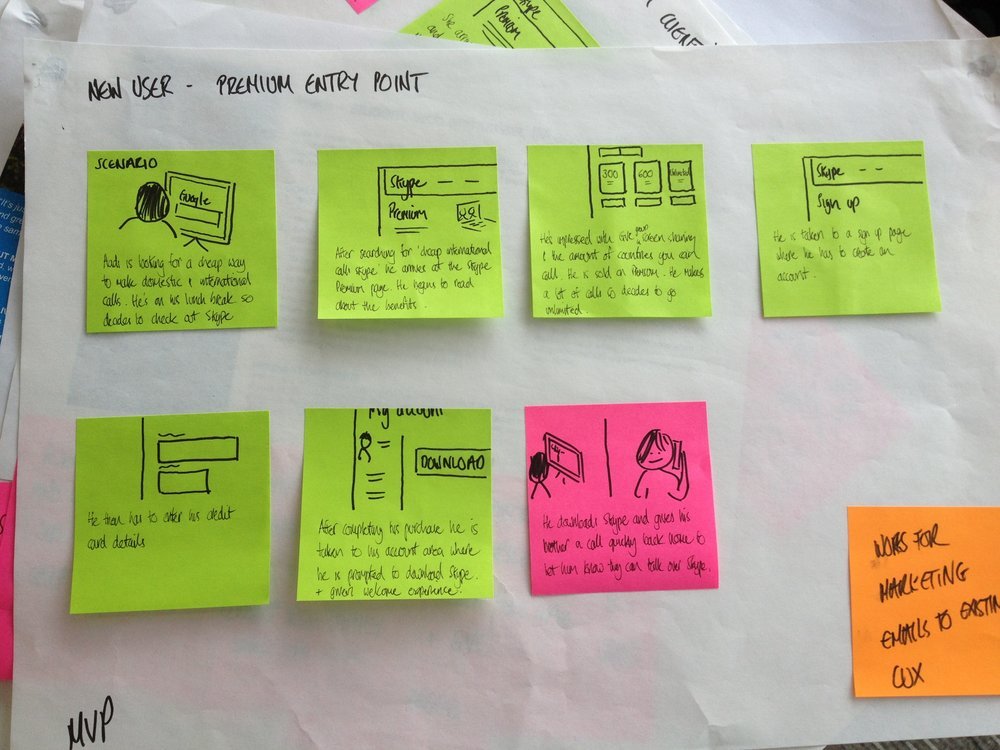 NEW USER - PREMIUM ENTRY POINT
SCENARIO
Google
Audi is looking for a cheap way
to make domestic + international
calls. He's on his lunch break so
decides to check out Skype
Skype
Premium
After searching for 'cheap international
calls skype' he arrives at the Skype
Premium page. He begins to read
about the benefits.
300
600
unlimited
He's impressed with the group screen sharing
+ the amount of countries you can
call. He is sold on Premium. He makes
a lot of calls so decides to go
unlimited.
Skype
Sign up
He is taken to a sign up page
where he has to create an
account.
He then has to enter his credit
card details
My account
DOWNLOAD
After completing his purchase he is
taken to his account area where
he is prompted to download Skype.
+ given welcome experience.
He downloads Skype and gives his
brother a call quickly back home to
let him know they can talk over Skype.
WORKS FOR
MARKETING
EMAILS TO EXISTIN
CUX
MVP
Premium